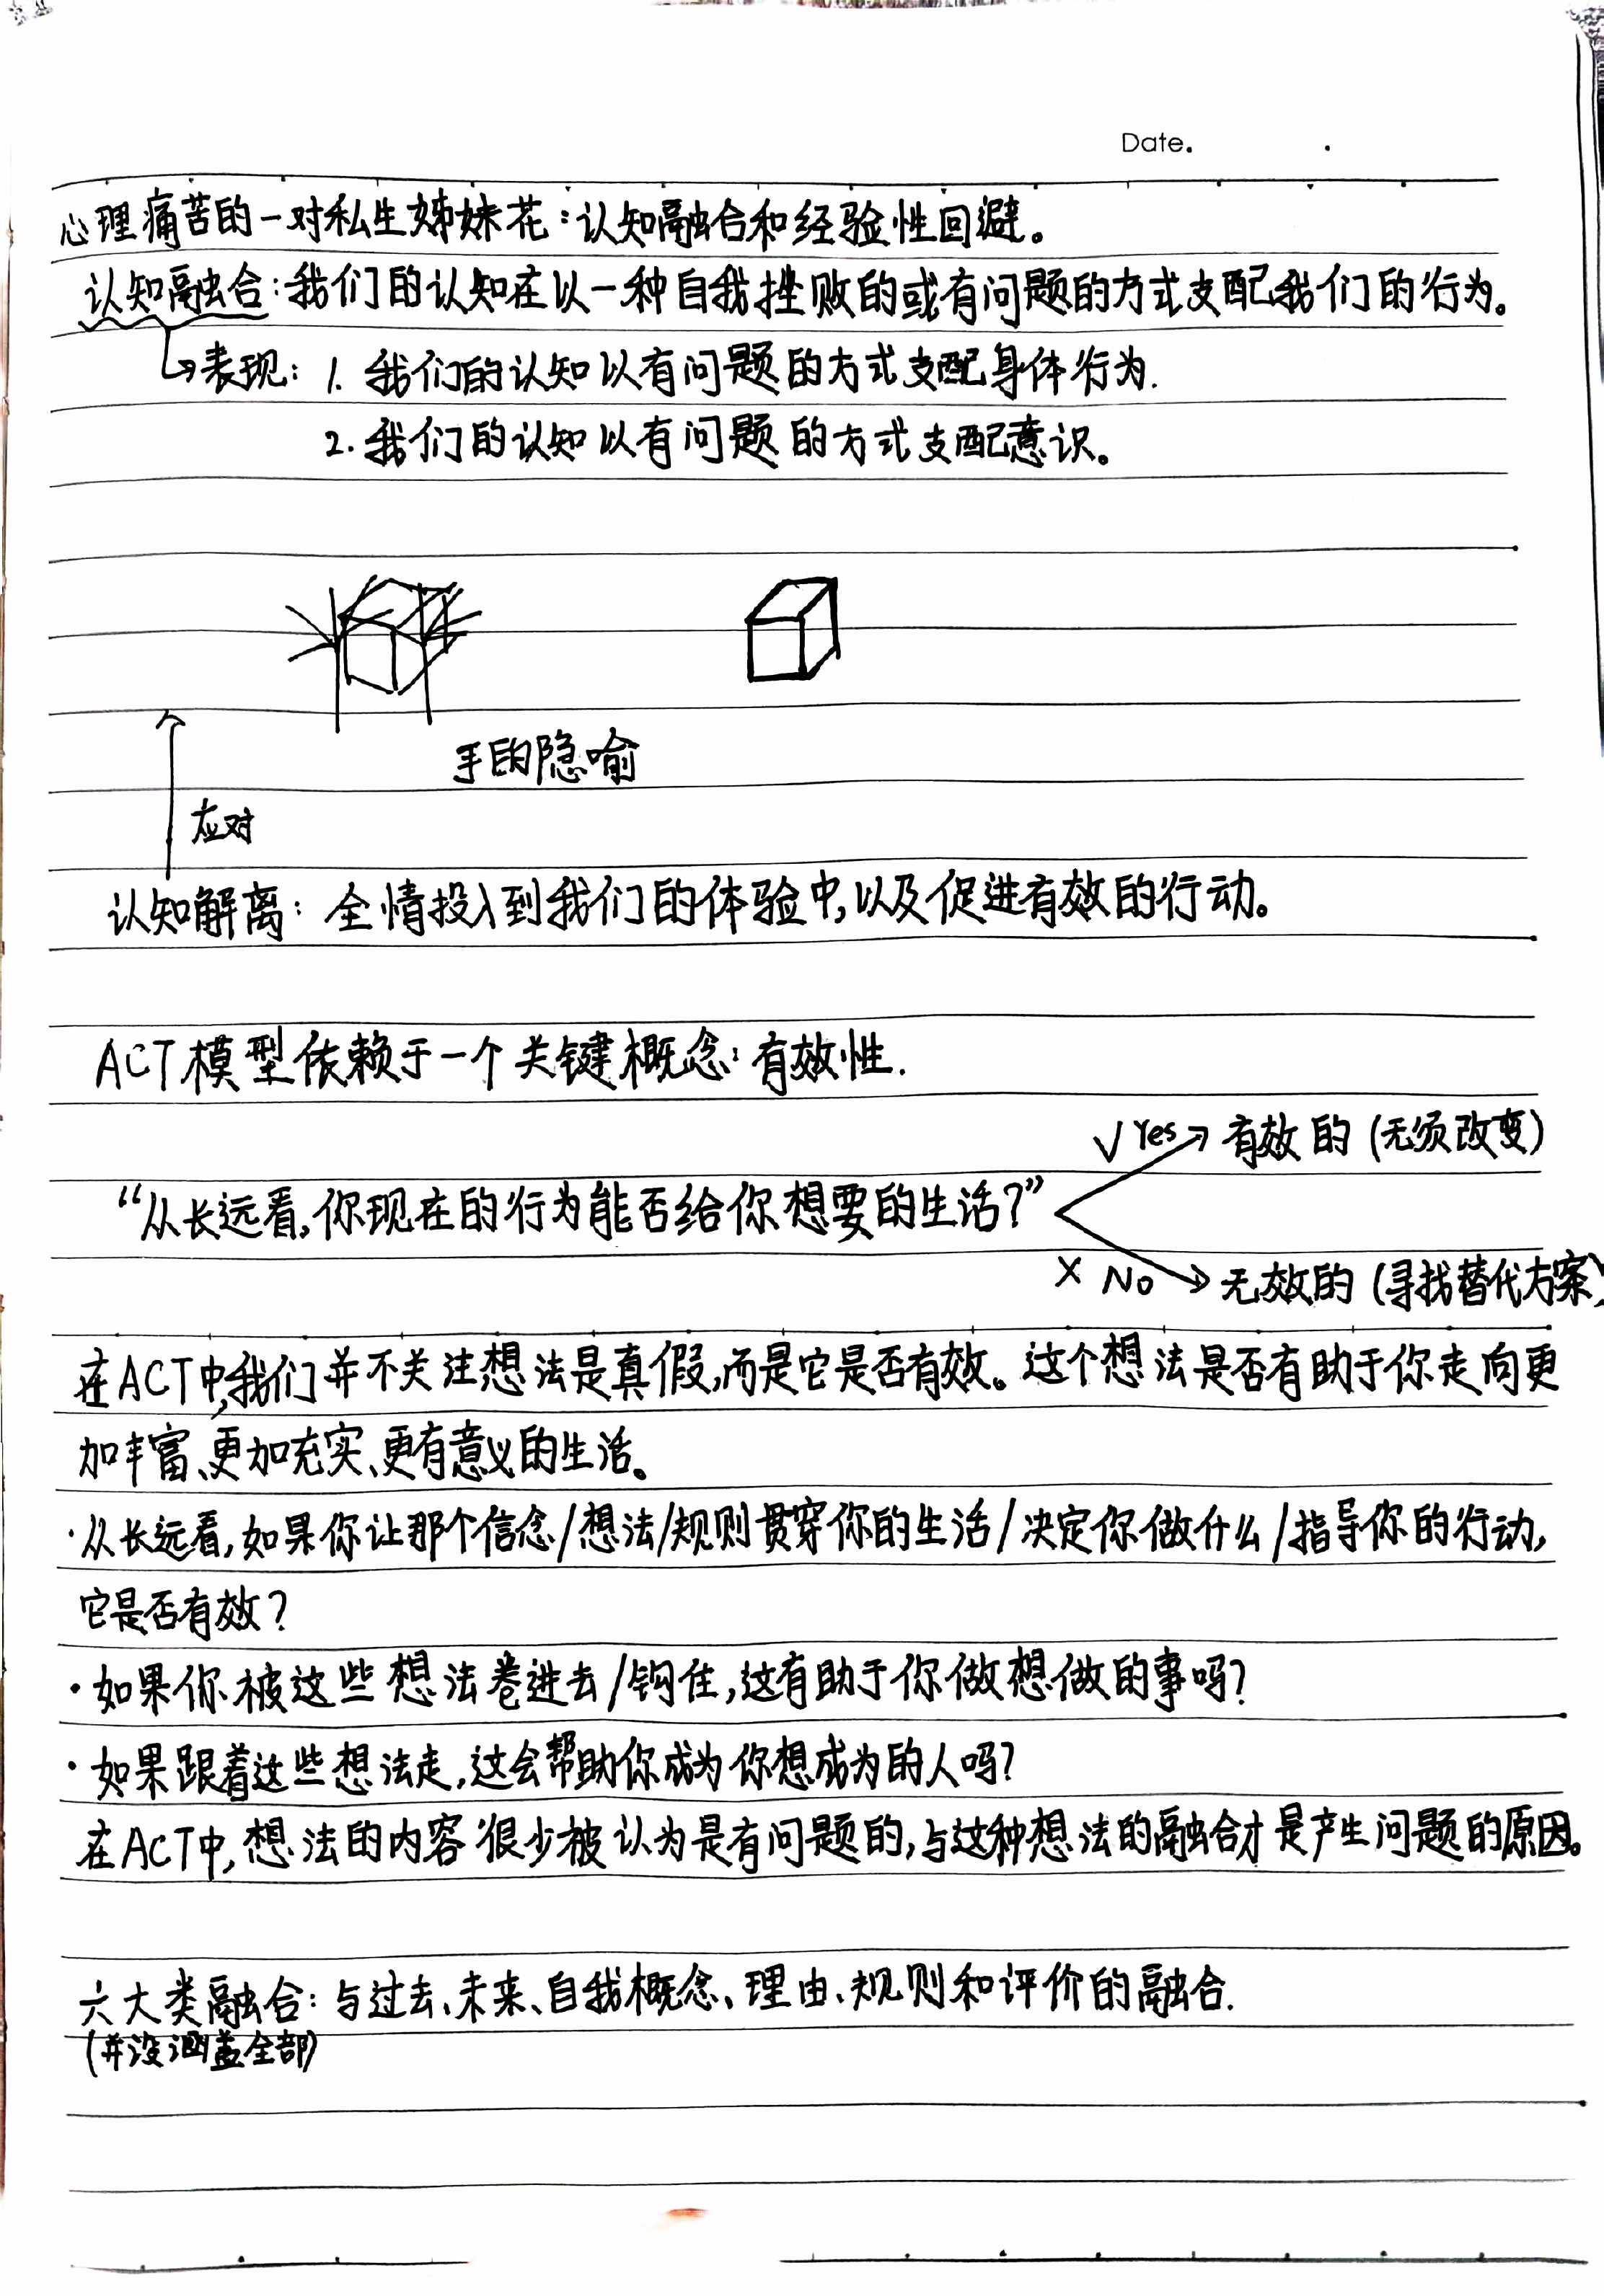 Date.
心理痛苦的一对私生姊妹花：认知融合和经验性回避。
认知融合：我们的认知在以一种自我挫败的或有问题的方式支配我们的行为。
表现：1. 我们的认知以有问题的方式支配身体行为.
2. 我们的认知以有问题的方式支配意识。
手的隐喻
应对
认知解离：全情投入到我们的体验中,以及促进有效的行动。
ACT模型依赖于一个关键概念：有效性.
√ Yes → 有效的 (无须改变)
“从长远看,你现在的行为能否给你想要的生活?”
× No → 无效的 (寻找替代方案)
在ACT中,我们并不关注想法是真假,而是它是否有效。这个想法是否有助于你走向更
加丰富、更加充实、更有意义的生活。
·从长远看,如果你让那个信念/想法/规则贯穿你的生活/决定你做什么/指导你的行动,
它是否有效?
·如果你被这些想法卷进去/钩住,这有助于你做想做的事吗?
·如果跟着这些想法走,这会帮助你成为你想成为的人吗?
在ACT中,想法的内容很少被认为是有问题的,与这种想法的融合才是产生问题的原因。
六大类融合：与过去、未来、自我概念、理由、规则和评价的融合.
(并没涵盖全部)